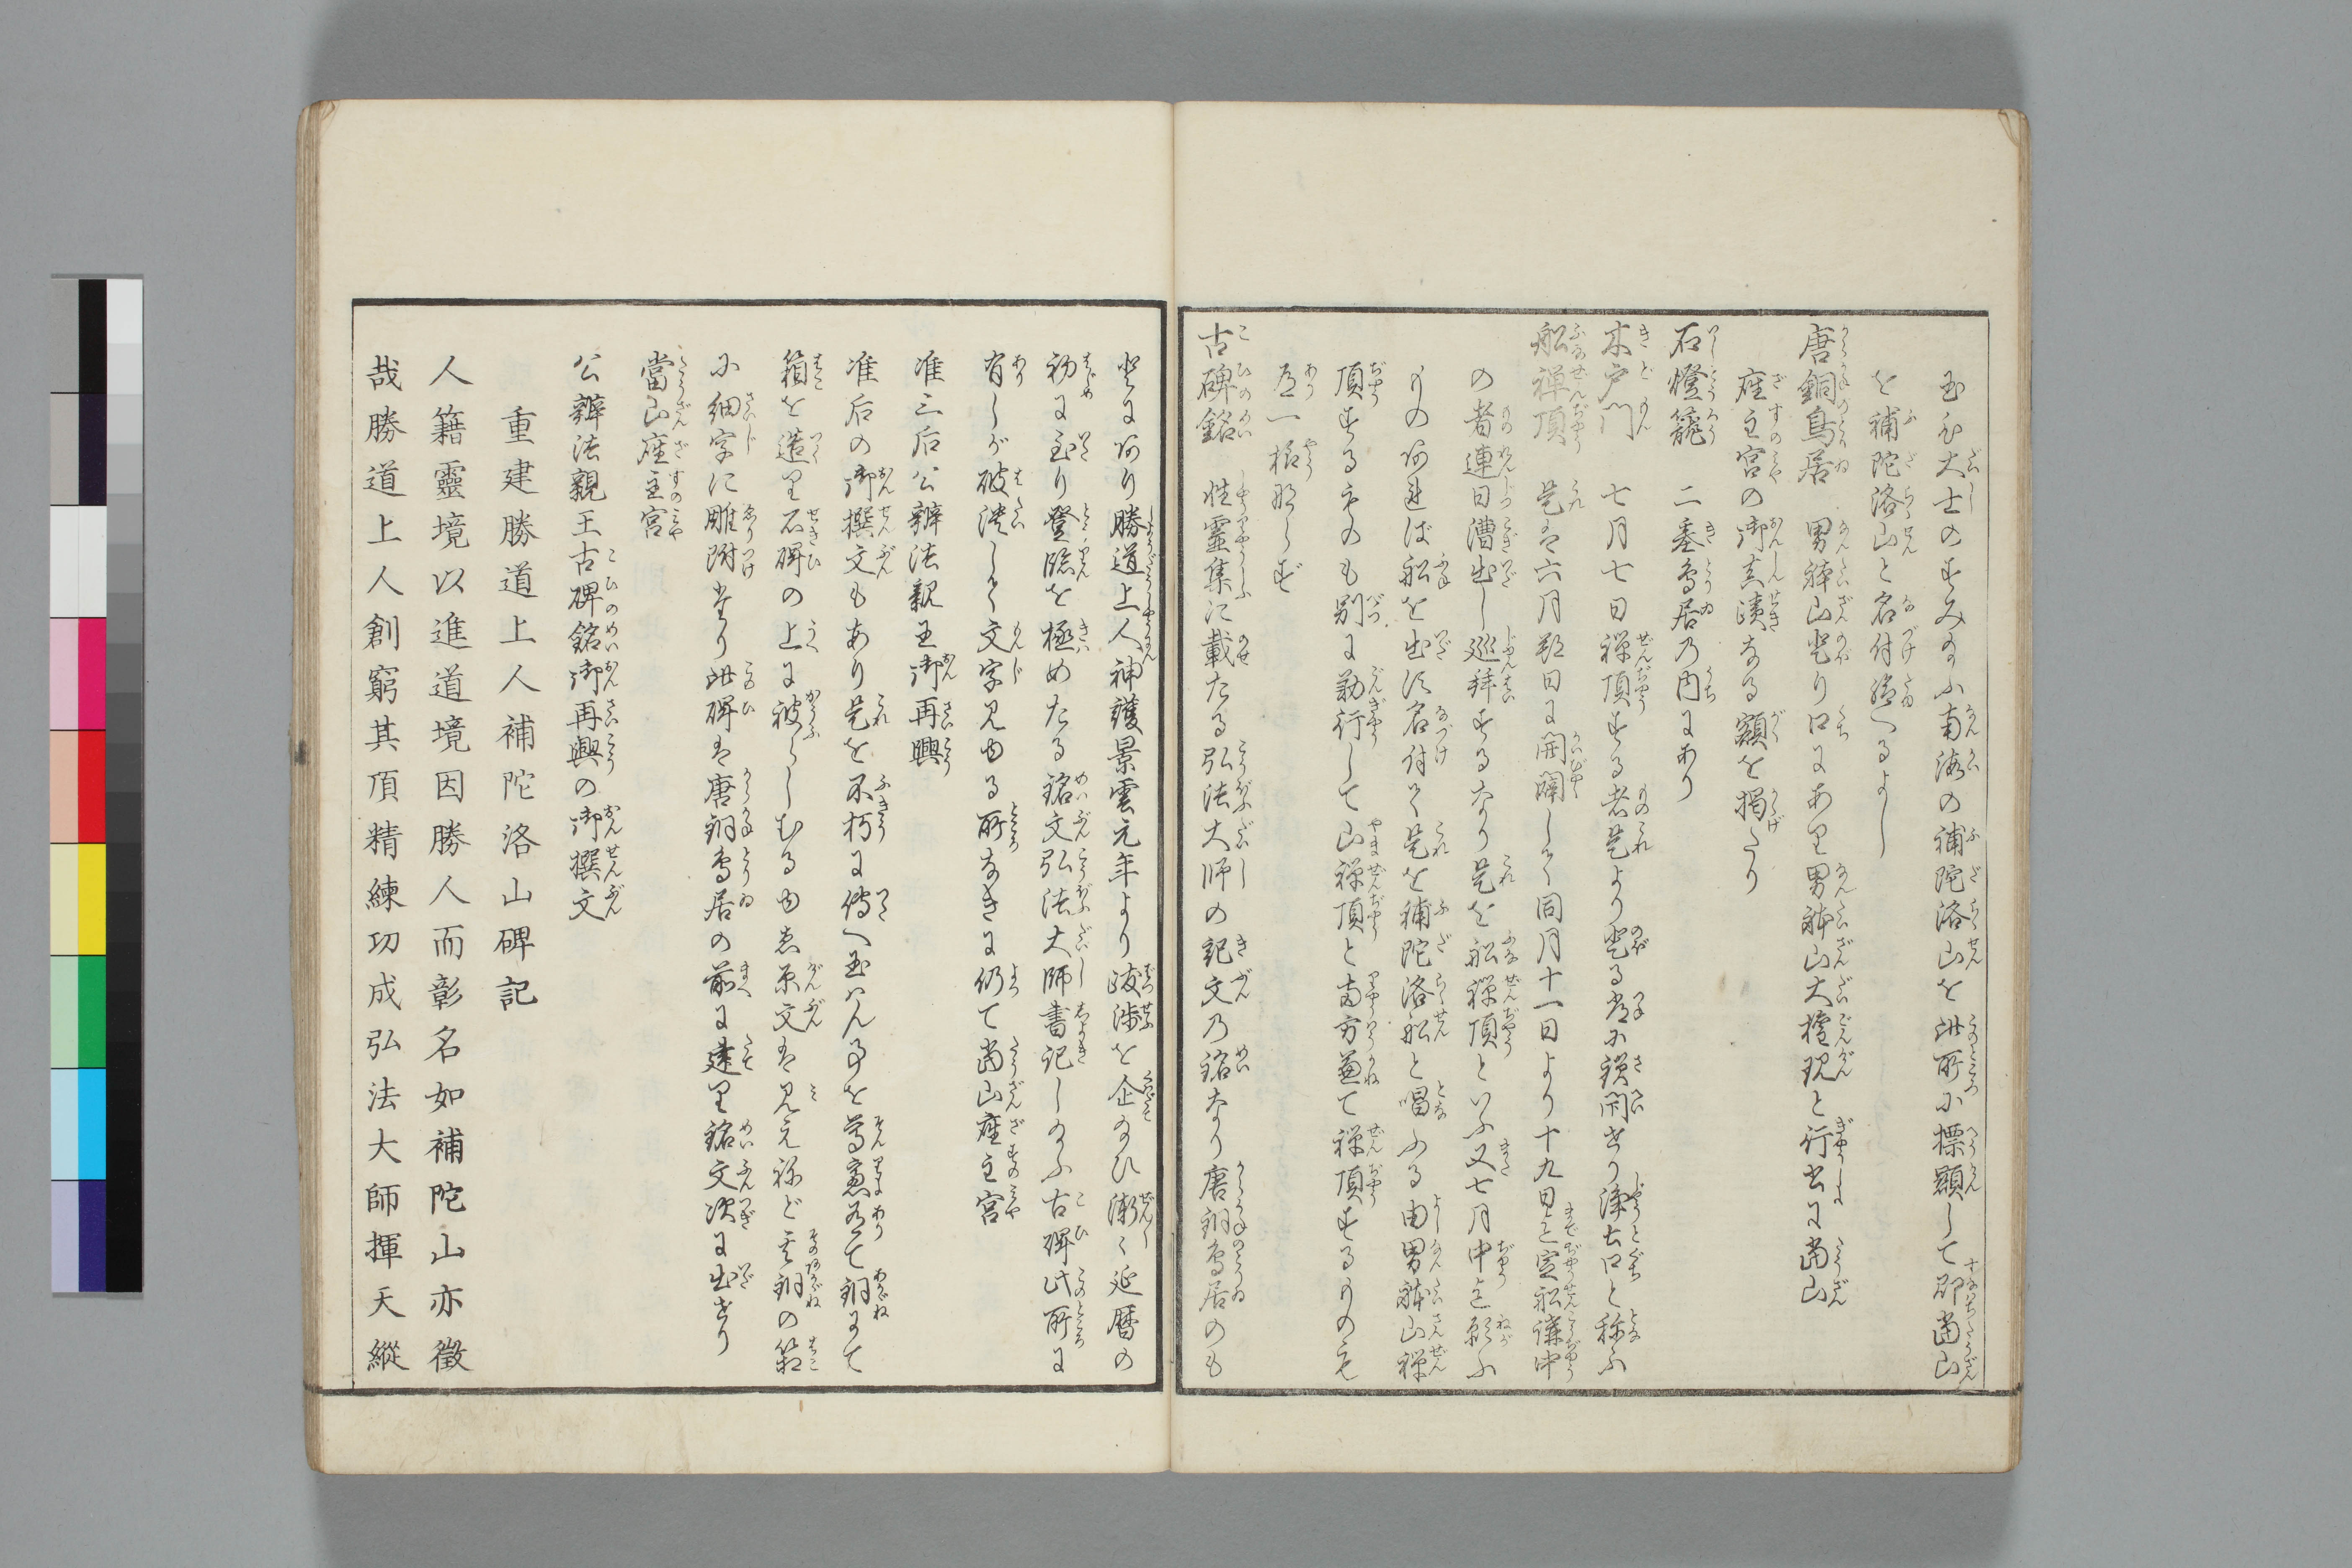 玉ふ大士のすみ給ふ南海の補陀洛山を此所に標顕して即當山
を補陀洛山と名付給へるよし
唐銅鳥居 男体山登り口にあり男体山大権現と行書に當山
座主宮の御真蹟なる額を掲たり
石燈籠 二基鳥居の内にあり
木戸門 七月七日禅頂する者是より登る常に鎖閉せり浄土口と称ふ
船禅頂 是は六月朔日に開闢して同月十一日より十九日迄定船講中
の者連日漕出し巡拝するなり是を船禅頂といふ又七月中迄願ふ
ものあれば船を出す名付て是を補陀洛船と唱ふる由男体山禅
頂するものも別に勤行して山禅頂と両方兼て禅頂するものも
有一様ならず
古碑銘 性霊集に載たる弘法大師の記文の銘なり唐銅鳥居のも
とにあり勝道上人神護景雲元年より跋渉を企給ひ漸く延暦の
初に至り登臨を極めたる銘文弘法大師書記し給ふ古碑此所に
有しが破潰して文字見ゆる所なきに仍て當山座主宮
准三后公辨法親王御再興
准后の御撰文もあり是を不朽に傳へ玉はん事を尊慮有て銅にて
箱を造り石碑の上に被らしむるゆゑ原文は見えねど其銅の箱
に細字に雕附たり此碑は唐銅鳥居の前に建り銘文次に出せり
當山座主宮
公辨法親王古碑銘御再興の御撰文
重建勝道上人補陀洛山碑記
人籍靈境以進道境因勝人而彰名如補陀山亦徵
哉勝道上人創窮其頂精練功成弘法大師揮天縱